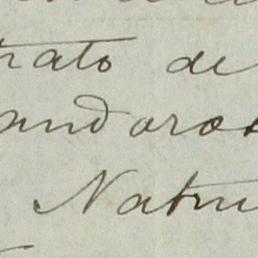 rato de
andoros
Natu